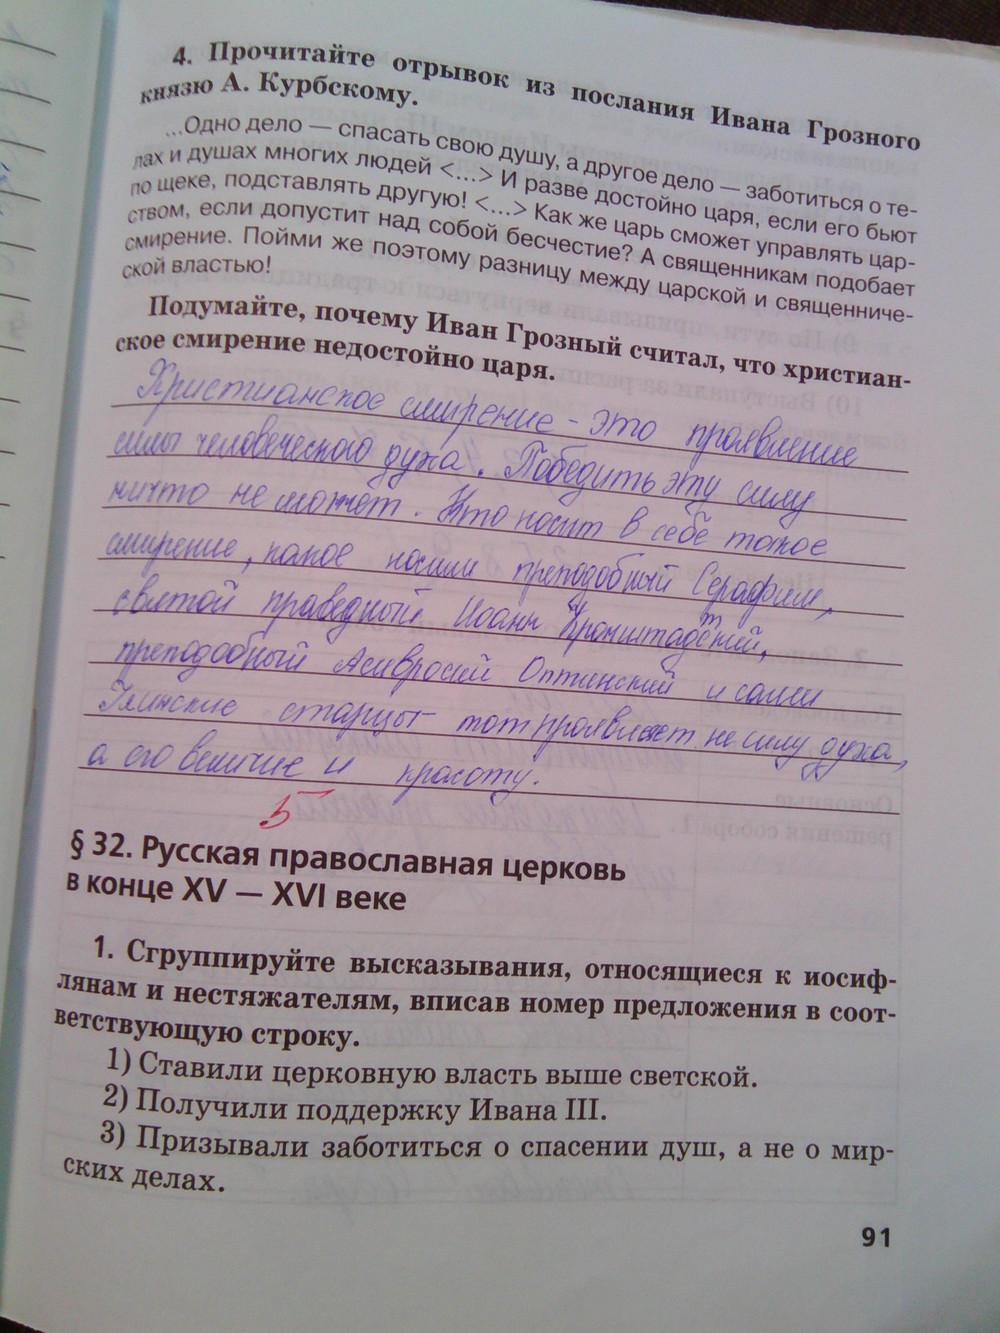 4. Прочитайте отрывок из послания Ивана Грозного
князю А. Курбскому.
...Одно дело — спасать свою душу, а другое дело — заботиться о те-
лах и душах многих людей <...> И разве достойно царя, если его бьют
по щеке, подставлять другую! <...> Как же царь сможет управлять цар-
ством, если допустит над собой бесчестие? А священникам подобает
смирение. Пойми же поэтому разницу между царской и священниче-
ской властью!
Подумайте, почему Иван Грозный считал, что христиан-
ское смирение недостойно царя.
Христианское смирение - это проявление
силы человеческого духа. Победить эту силу
ничто не может. Кто носит в себе такое
смирение, какое носили преподобный Серафим,
святой праведный Иоанн Кронштадтский,
преподобный Амвросий Оптинский и сами
старцы - тот проявляет не силу духа,
а его величие и красоту.
5
§ 32. Русская православная церковь
в конце XV — XVI веке
1. Сгруппируйте высказывания, относящиеся к иосиф-
лянам и нестяжателям, вписав номер предложения в соот-
ветствующую строку.
1) Ставили церковную власть выше светской.
2) Получили поддержку Ивана III.
3) Призывали заботиться о спасении душ, а не о мир-
ских делах.
91